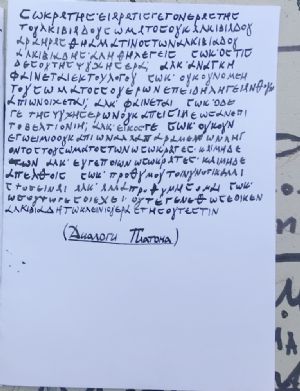 ΣΩΚΡΑΤΗΣΕΙΑΡΑΤΙΣΓΕΓΟΝΕΡΑΣΤΗΣ
ΤΟΥΑΛΚΙΒΙΑΔΟΥΣΩΜΑΤΟΣΟΥΚΑΛΚΙΒΙΑΔΟΥ
ΑΡΑΗΡΑΣΘΗΑΛΛΑΤΙΝΟΣΤΩΝΑΛΚΙΒΙΑΔΟΥ
ΑΛΚΙΒΙΑΔΗΣΑΛΗΘΗΛΕΓΕΙΣ ΣΩΚ· ΟΣΤΙΣ
ΔΕΣΟΥΤΗΣΨΥΧΗΣΕΡΑ; ΑΛΚ· ΑΝΑΓΚΗ
ΦΑΙΝΕΤΑΙΕΚΤΟΥΛΟΓΟΥ ΣΩΚ· ΟΥΚΟΥΝΟΜΕΝ
ΤΟΥΣΩΜΑΤΟΣΣΟΥΕΡΩΝΕΠΕΙΔΗΛΗΓΕΙΑΝΘΟΥΝ
ΑΠΙΩΝΟΙΧΕΤΑΙ; ΑΛΚ· ΦΑΙΝΕΤΑΙ ΣΩΚ· ΟΔΕ
ΓΕ ΤΗΣΨΥΧΗΣΕΡΩΝΟΥΚΑΠΕΙΣΙΝΕΩΣΑΝΕΠΙ
ΤΟΒΕΛΤΙΟΝΙΗ; ΑΛΚ· ΕΙΚΟΣΓΕ ΣΩΚ· ΟΥΚΟΥΝ
ΕΓΩΕΙΜΙΟΟΥΚΑΠΙΩΝΑΛΛΑΠΑΡΑΜΕΝΩΝΛΗΓ
ΟΝΤΟΣΤΟΥΣΩΜΑΤΟΣ
ΑΛΚ· ΕΥΓΕΠΟΙΩΝΩΣΩΚΡΑΤΕΣ· ΚΑΙΜΗΔΕ
ΑΠΕΛΘΟΙΣ ΣΩΚ· ΠΡΟΘΥΜΟΥΤΟΙΝΥΝΟΤΙΚΑΛΛΙ
ΣΤΟΣΕΙΝΑΙ ΑΛΚ· ΑΛΛΑΠΡΟΘΥΜΗΣΟΜΑΙ ΣΩΚ·
ΩΣΟΥΤΩΓΕΣΟΙΕΧΕΙ· ΟΥΤΕΓΕΝΕΘΩΣΕΟΙΚΕΝ
ΑΛΚΙΒΙΑΔΗΤΩΚΛΕΙΝΙΟΥΕΡΑΣΤΗΣΟΥΤΕΣΤΙΝ
(Диалоги Платона)